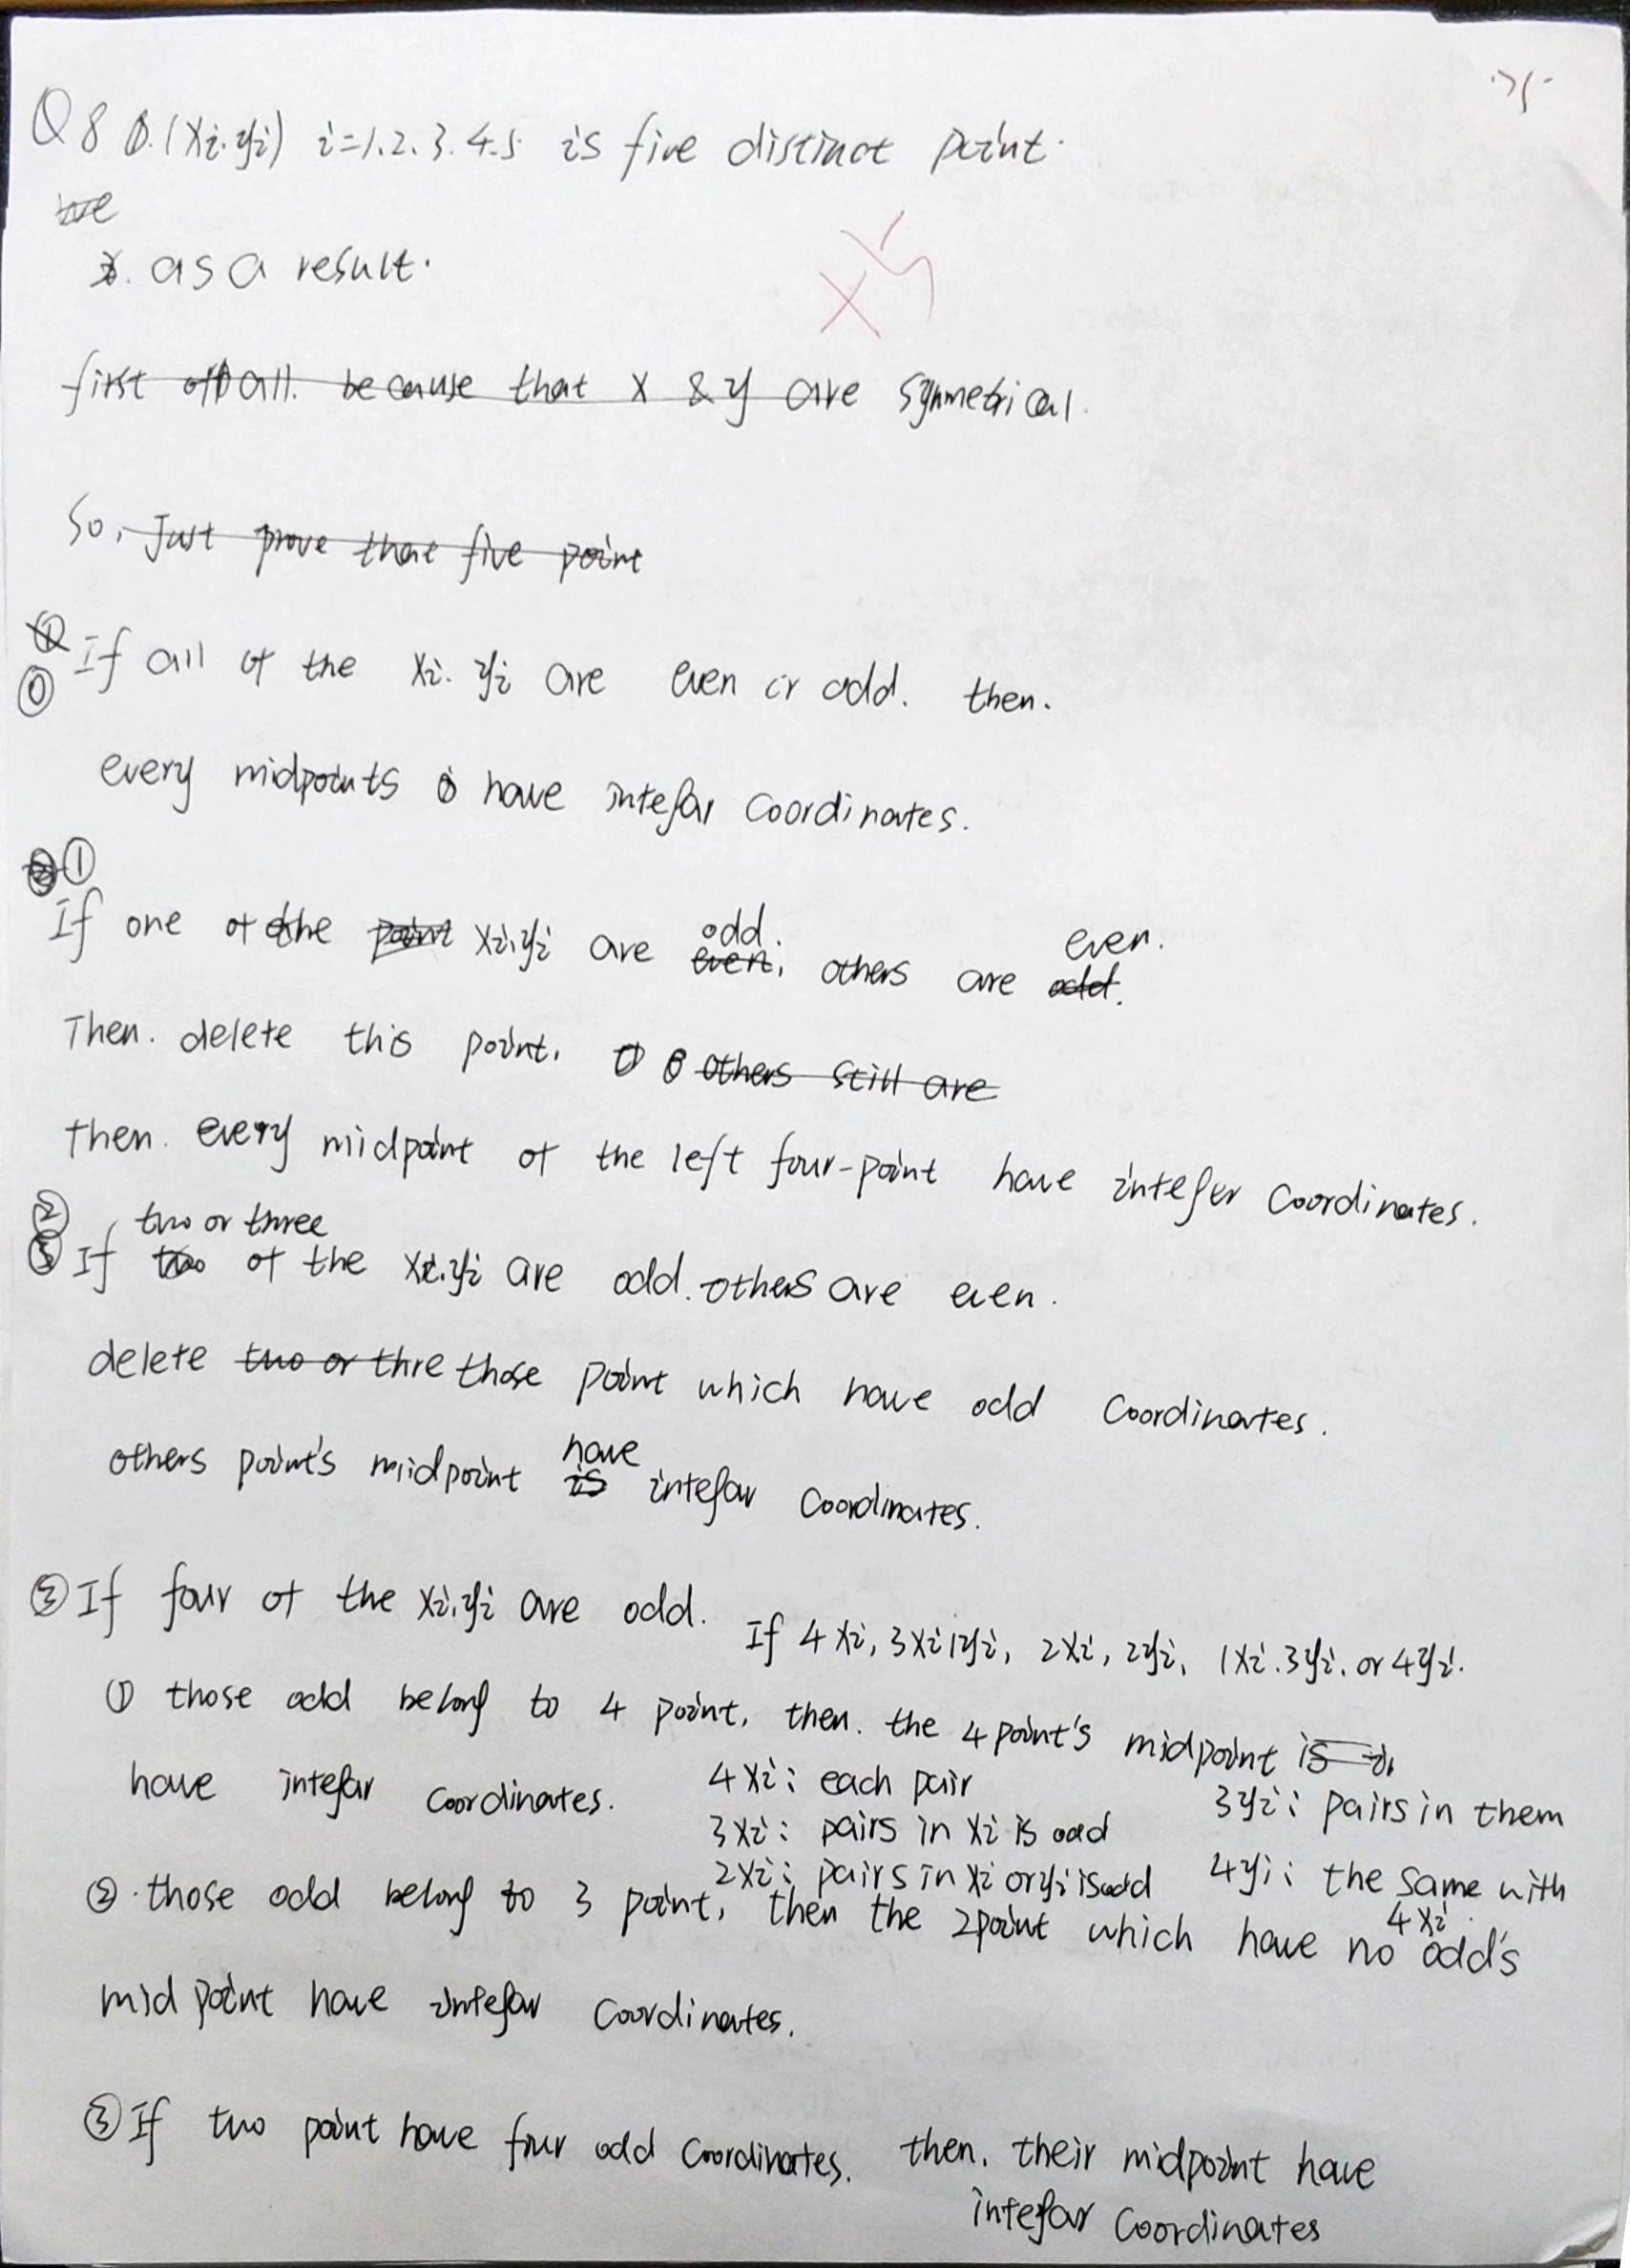 Q8 (xi.yi) i=1.2.3.4.5 is five distinct point.
we
as a result.
first of all. because that x & y are symmetrical.
So, Just prove that five point
⓪ If all of the xi. yi are even or odd. then.
every midpoints have intefar coordinates.
①
If one of the point xi.yi are even, odd. others are odd. even.
Then. delete this point. others still are
then. every midpoint of the left four-point have intefer coordinates.
② If two two or three of the xi.yi are odd. others are even.
delete two or thre those point which have odd coordinates.
others point's midpoint is have intefar coordinates.
③ If four of the xi.yi are odd. If 4xi, 3xi1yi, 2xi, 2yi, 1xi.3yi. or 4yi.
① those odd belong to 4 point, then. the 4 point's midpoint is
have intefar coordinates.
4xi: each pair
3xi: pairs in xi is odd
2xi: pairs in xi or yi is odd
3yi: pairs in them
4yi: the same with
4xi.
② those odd belong to 3 point, then the 2point which have no odd's
midpoint have intefar coordinates.
③ If two point have four odd coordinates. then. their midpoint have
intefar coordinates